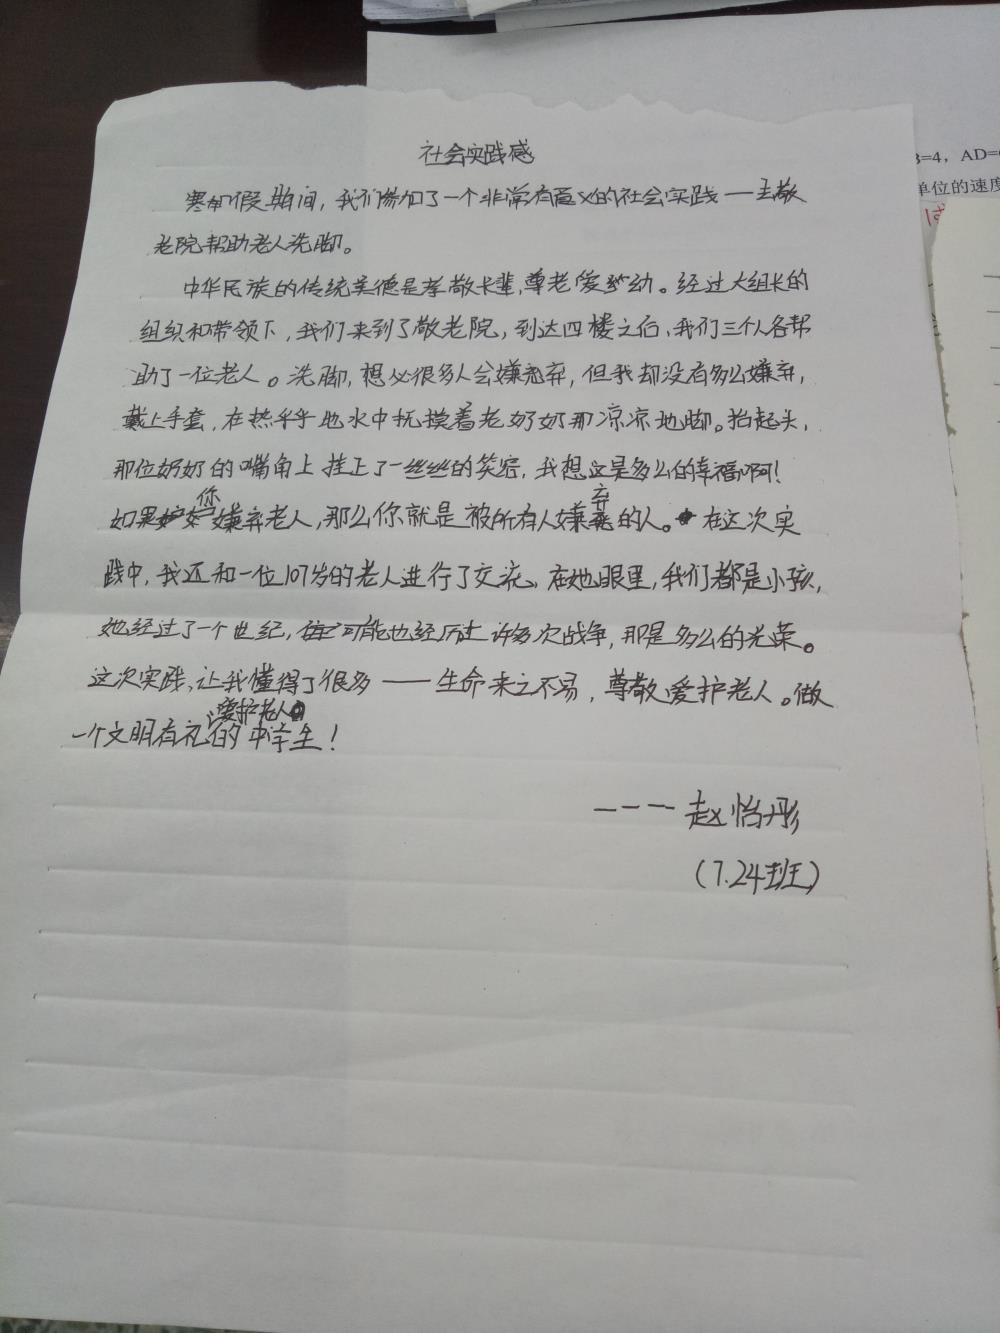 社会实践感
寒假期间，我们参加了一个非常有意义的社会实践——去敬
老院帮助老人洗脚。
中华民族的传统美德是孝敬长辈，尊老爱幼。经过大组长的
组织和带领下，我们来到了敬老院，到达四楼之后，我们三个人各帮
助了一位老人。洗脚，想必很多人会嫌弃，但我却没有多么嫌弃，
戴上手套，在热乎乎地水中抚摸着老奶奶那凉凉地脚。抬起头，
那位奶奶的嘴角上挂上了一丝丝的笑容，我想这是多么的幸福啊！
如果你嫌弃老人，那么你就是被所有人嫌弃的人。在这次实
践中，我还和一位107岁的老人进行了交流，在她眼里，我们都是小孩，
她经过了一个世纪，可能也经历过许多次战争，那是多么的光荣。
这次实践，让我懂得了很多——生命来之不易，尊敬爱护老人。做
一个文明有礼爱护老人的中学生！
————赵怡彤
（7.24班）
B=4，AD=
单位的速度